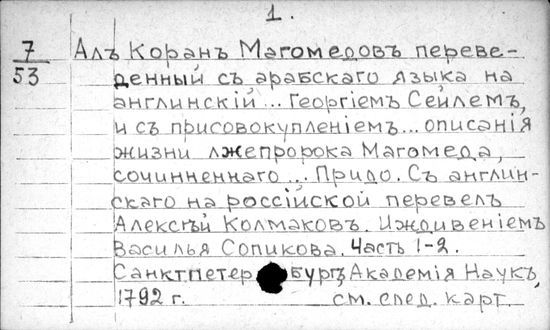 1.
7/53 Алъ Коранъ Магомедовъ переве-
денный съ арабскаго языка на
англинскій ... Георгіемъ Сейлемъ,
и съ присовокупленіемъ ... описанія
жизни лжепророка Магомеда,
сочинненнаго ... Придо. Съ англин-
скаго на россійской перевелъ
Алексѣй Колмаковъ. Иждивеніемъ
Василья Сопикова. Часть 1-2.
Санктпетербургъ, Академія Наукъ,
1792 г. см. след. карт.